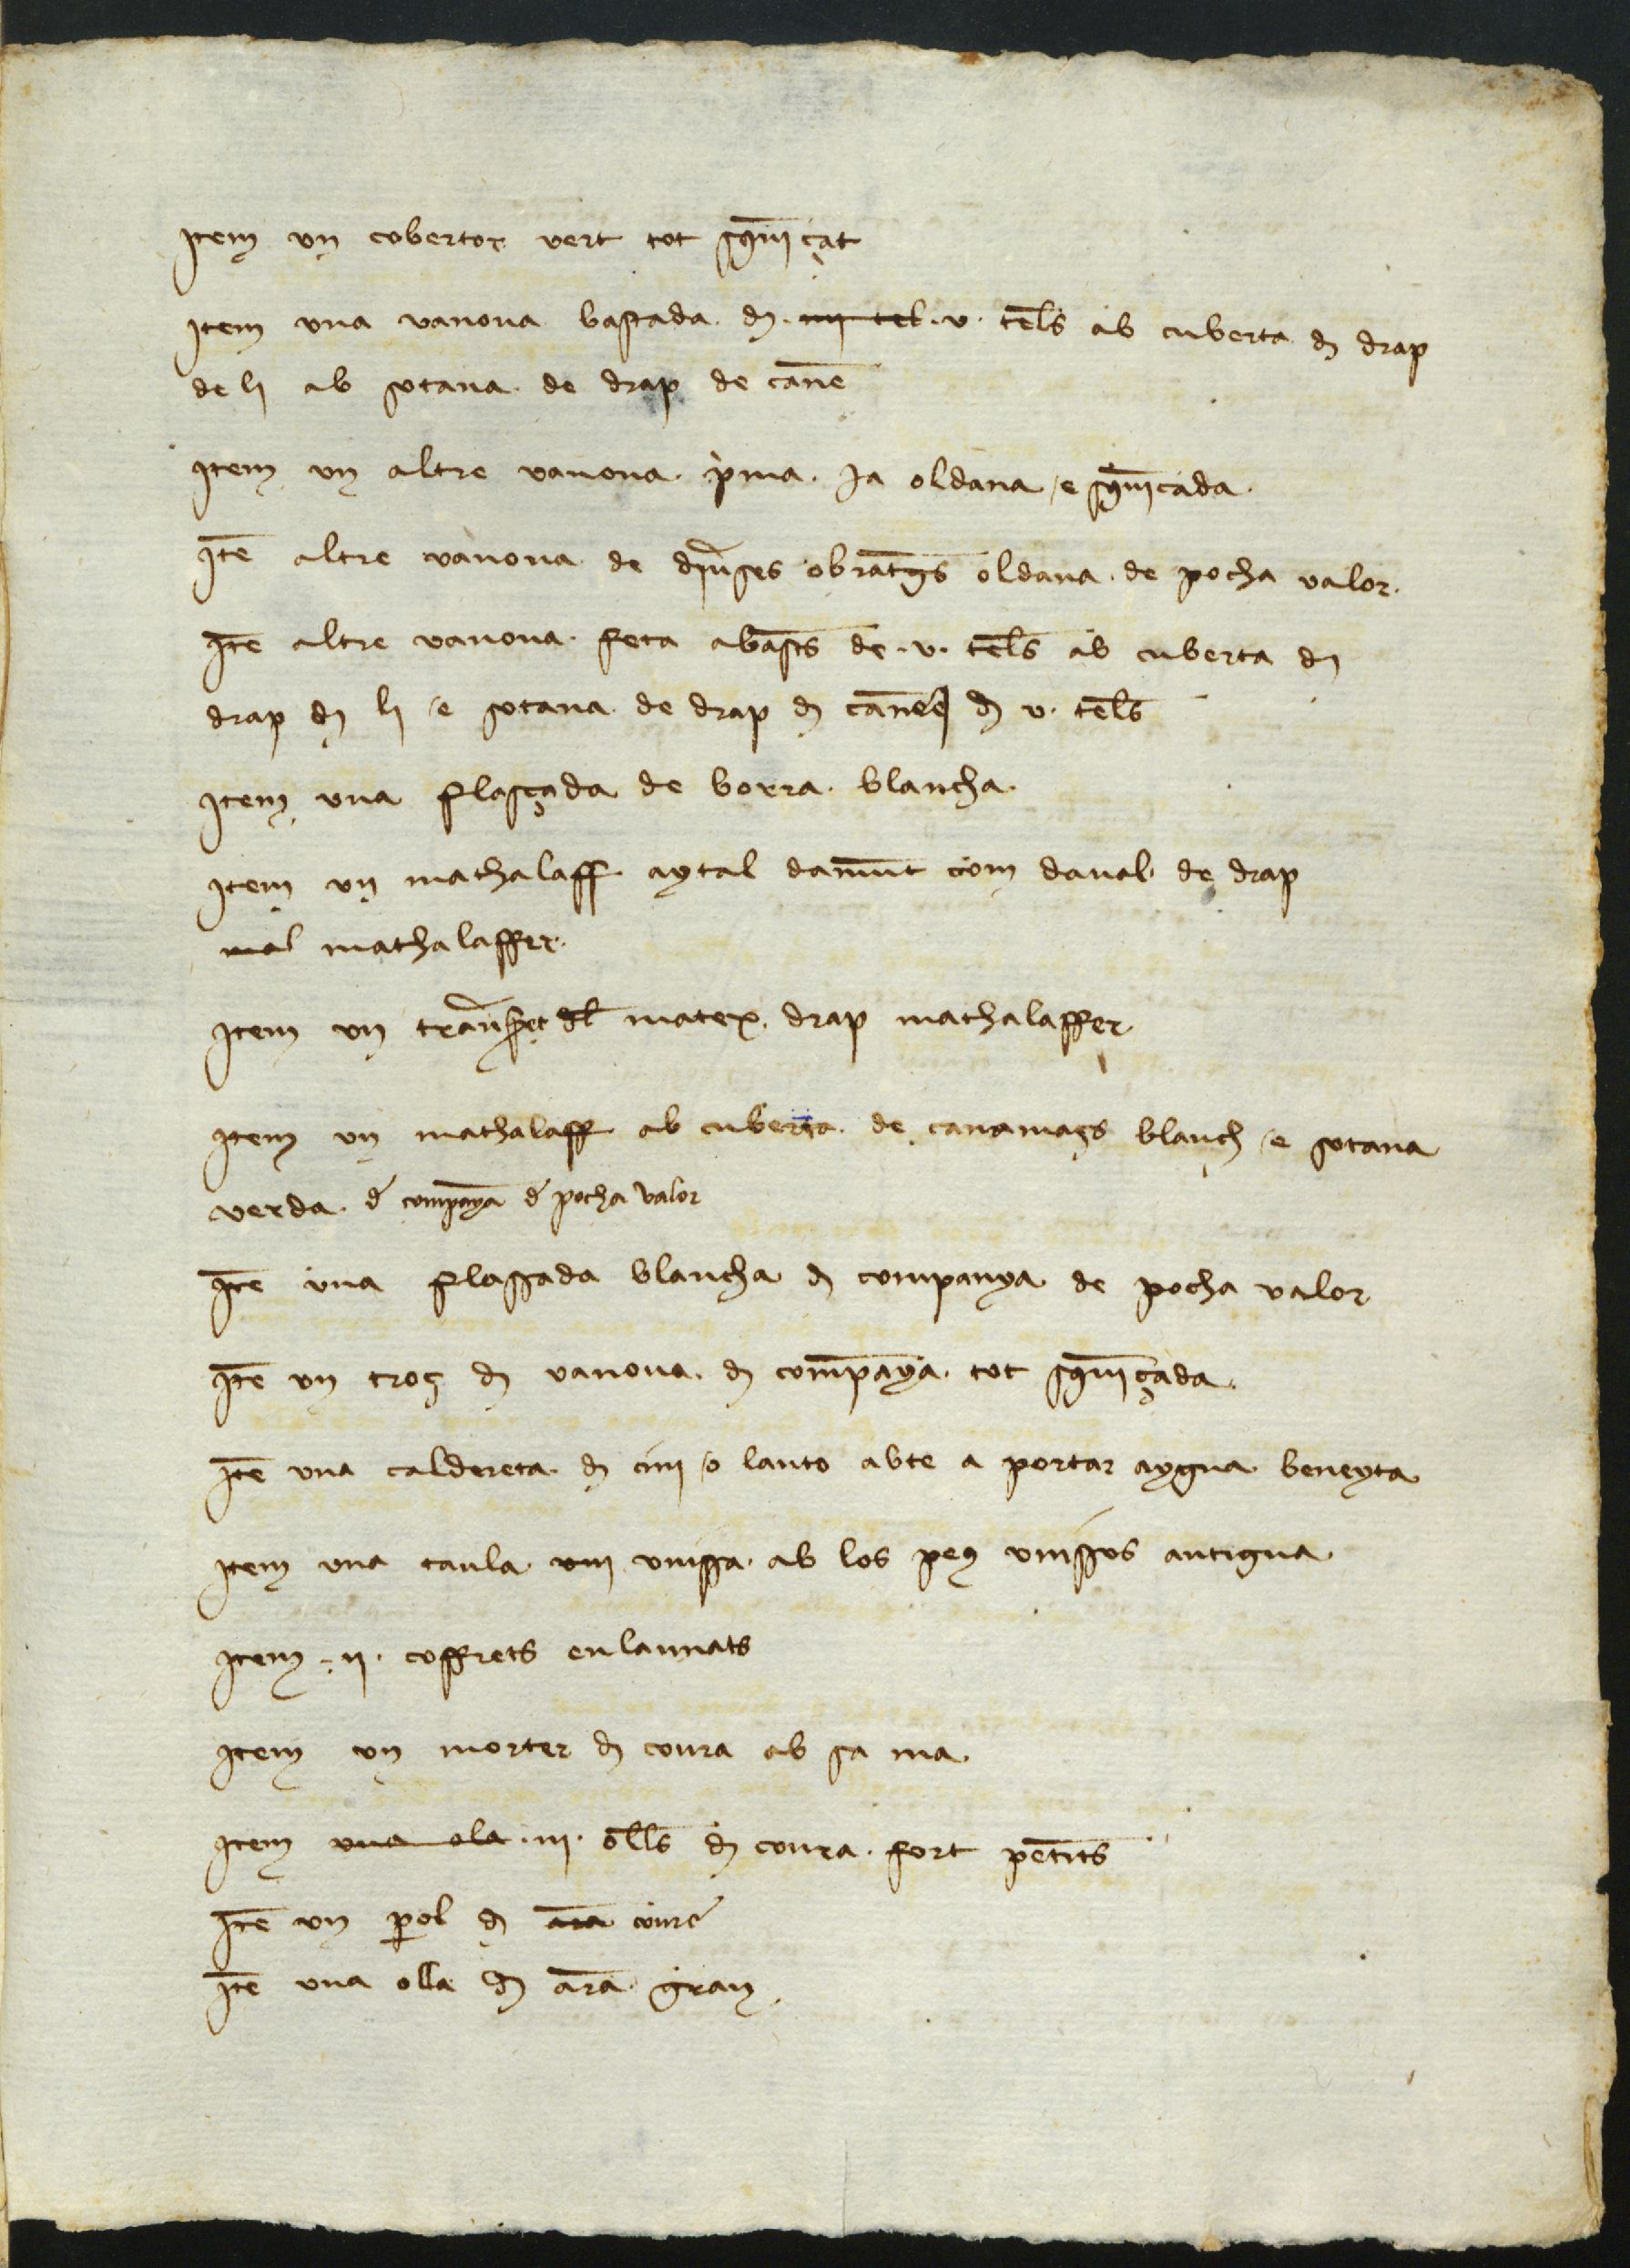 Item un cobertor vert tot sqȳçat
Item una vanova bastada de v. tel̄s ab cuberta de drap
de li ab sotana de drap de canē
Item un altre vanova pma. ja oldana e sqȳcada
Itē altre vanova de diṽses obratḡs oldana de pocha valor
Itē altre vanova feta abast̄s de .v. tel̄s ab cuberta de
drap de li e sotana de drap de v. tel̄s
Item una flasçada de borra blancha
Item un mathalaff aytal damūt com daval de drap
mal mathalaffer
Item un del matex drap mathalaffer
Item un mathalaff ab cuberta de canamaçs blanch e sotana
verda de compaȳa de pocha valor
Itē una flassada blancha de companya de pocha valor
Itē un troç de vanova de compaȳa tot sqȳçada
Itē una caldereta de o lanto abte a portar aygua beneyta
Item una taula ab los peus antigua
Item .ii. coffrets enlaunats
Item un morter de coura ab sa ma
Item una ola .iii. oll̄s de coura fort petit̄s
Itē un perol de arā coure
Itē una olla de arā gran